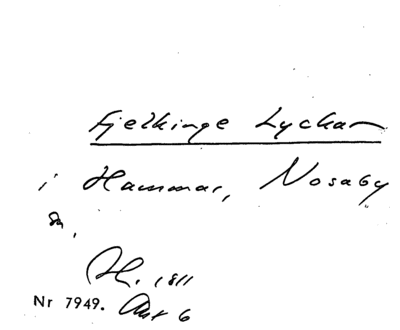 Fjelkinge Lyckan
i Hammar, Nosaby
sn,
1811
Nr 7949. Akt 6